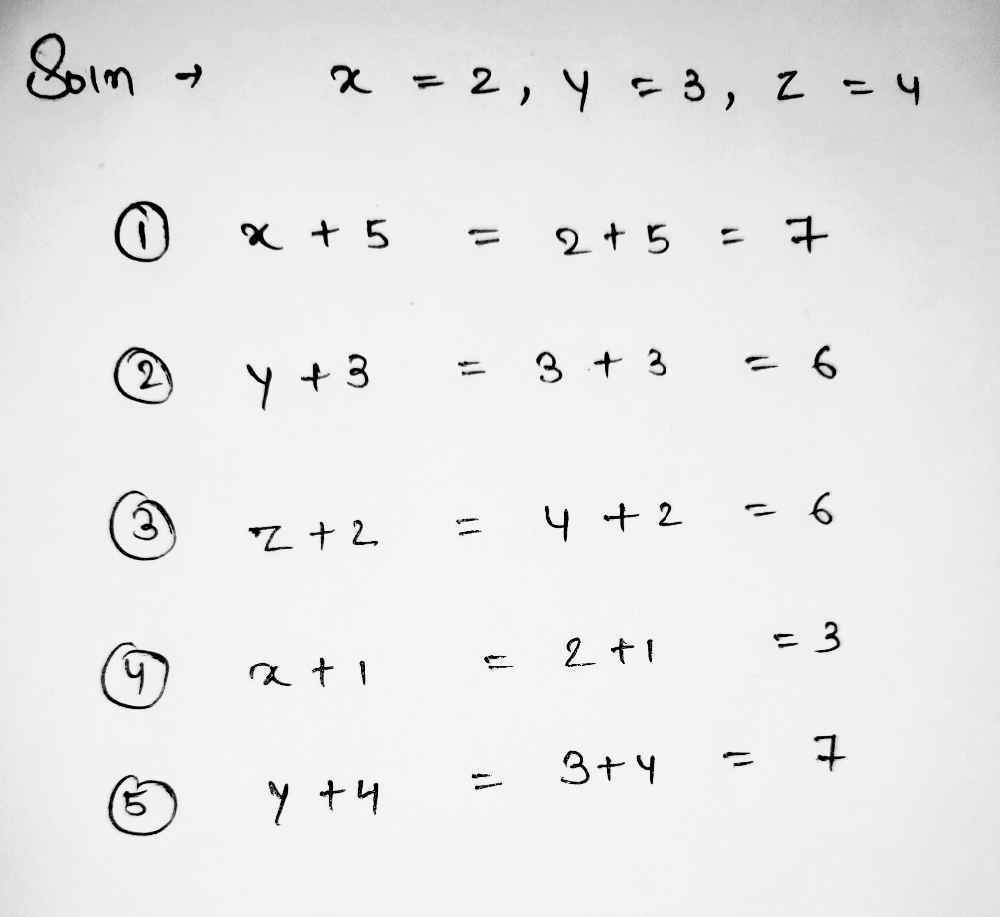 Soln → x = 2, y = 3, z = 4
① x + 5 = 2 + 5 = 7
② y + 3 = 3 + 3 = 6
③ z + 2 = 4 + 2 = 6
④ x + 1 = 2 + 1 = 3
⑤ y + 4 = 3 + 4 = 7